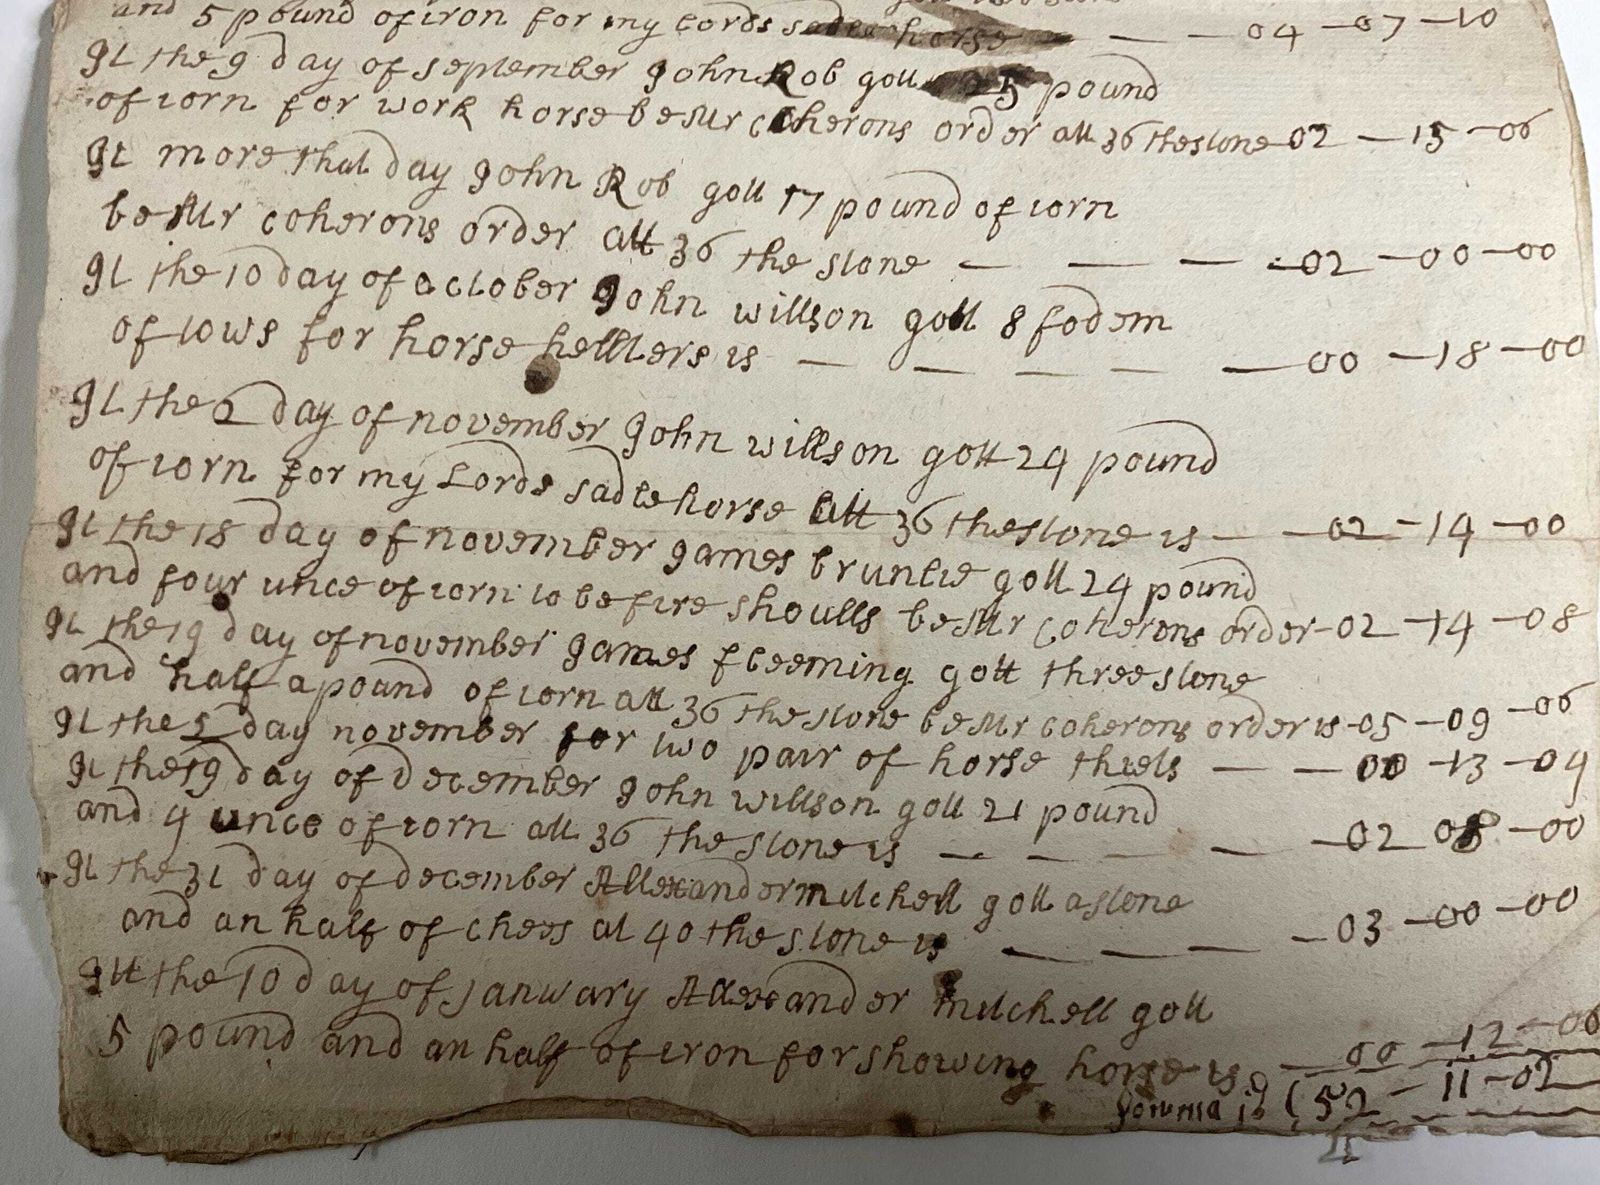 and 5 pound of iron for my Lords sadle horse — — — 04 — 07 — 10
It the 9 day of september John Rob gott 25 pound
of iorn for work horse be Mr Coherons order att 36 the stone 02 — 15 — 06
It more that day John Rob gott 17 pound of iorn
be Mr coherons order att 36 the stone — — — 02 — 00 — 00
It the 10 day of october John willson gott 8 fodem
of tows for horse hellters is — — — — — 00 — 18 — 00
It the 2 day of november John willson gott 24 pound
of iorn for my Lords sadle horse att 36 the stone is — — 02 — 14 — 00
It the 18 day of november James bruntie gott 24 pound
and four unce of iorn to be fire shoulls be Mr coherons order - 02 — 14 — 08
It the 19 day of november James fleeming gott three stone
and half a pound of iorn att 36 the stone be Mr coherons order is - 05 — 09 — 06
It the 5 day november for two pair of horse thiels — — 00 — 13 — 04
It the 19 day of December John willson gott 21 pound
and 4 unce of iorn att 36 the stone is — — — — — 02 08 — 00
It the 31 day of december Allexander mitchell gott a stone
and an half of chees at 40 the stone is — — — — 03 — 00 — 00
Itt the 10 day of janwary Allexander mitchell gott
5 pound and an half of iron for showing horse is — 00 — 12 — 06
Somma is (52 — 11 — 02